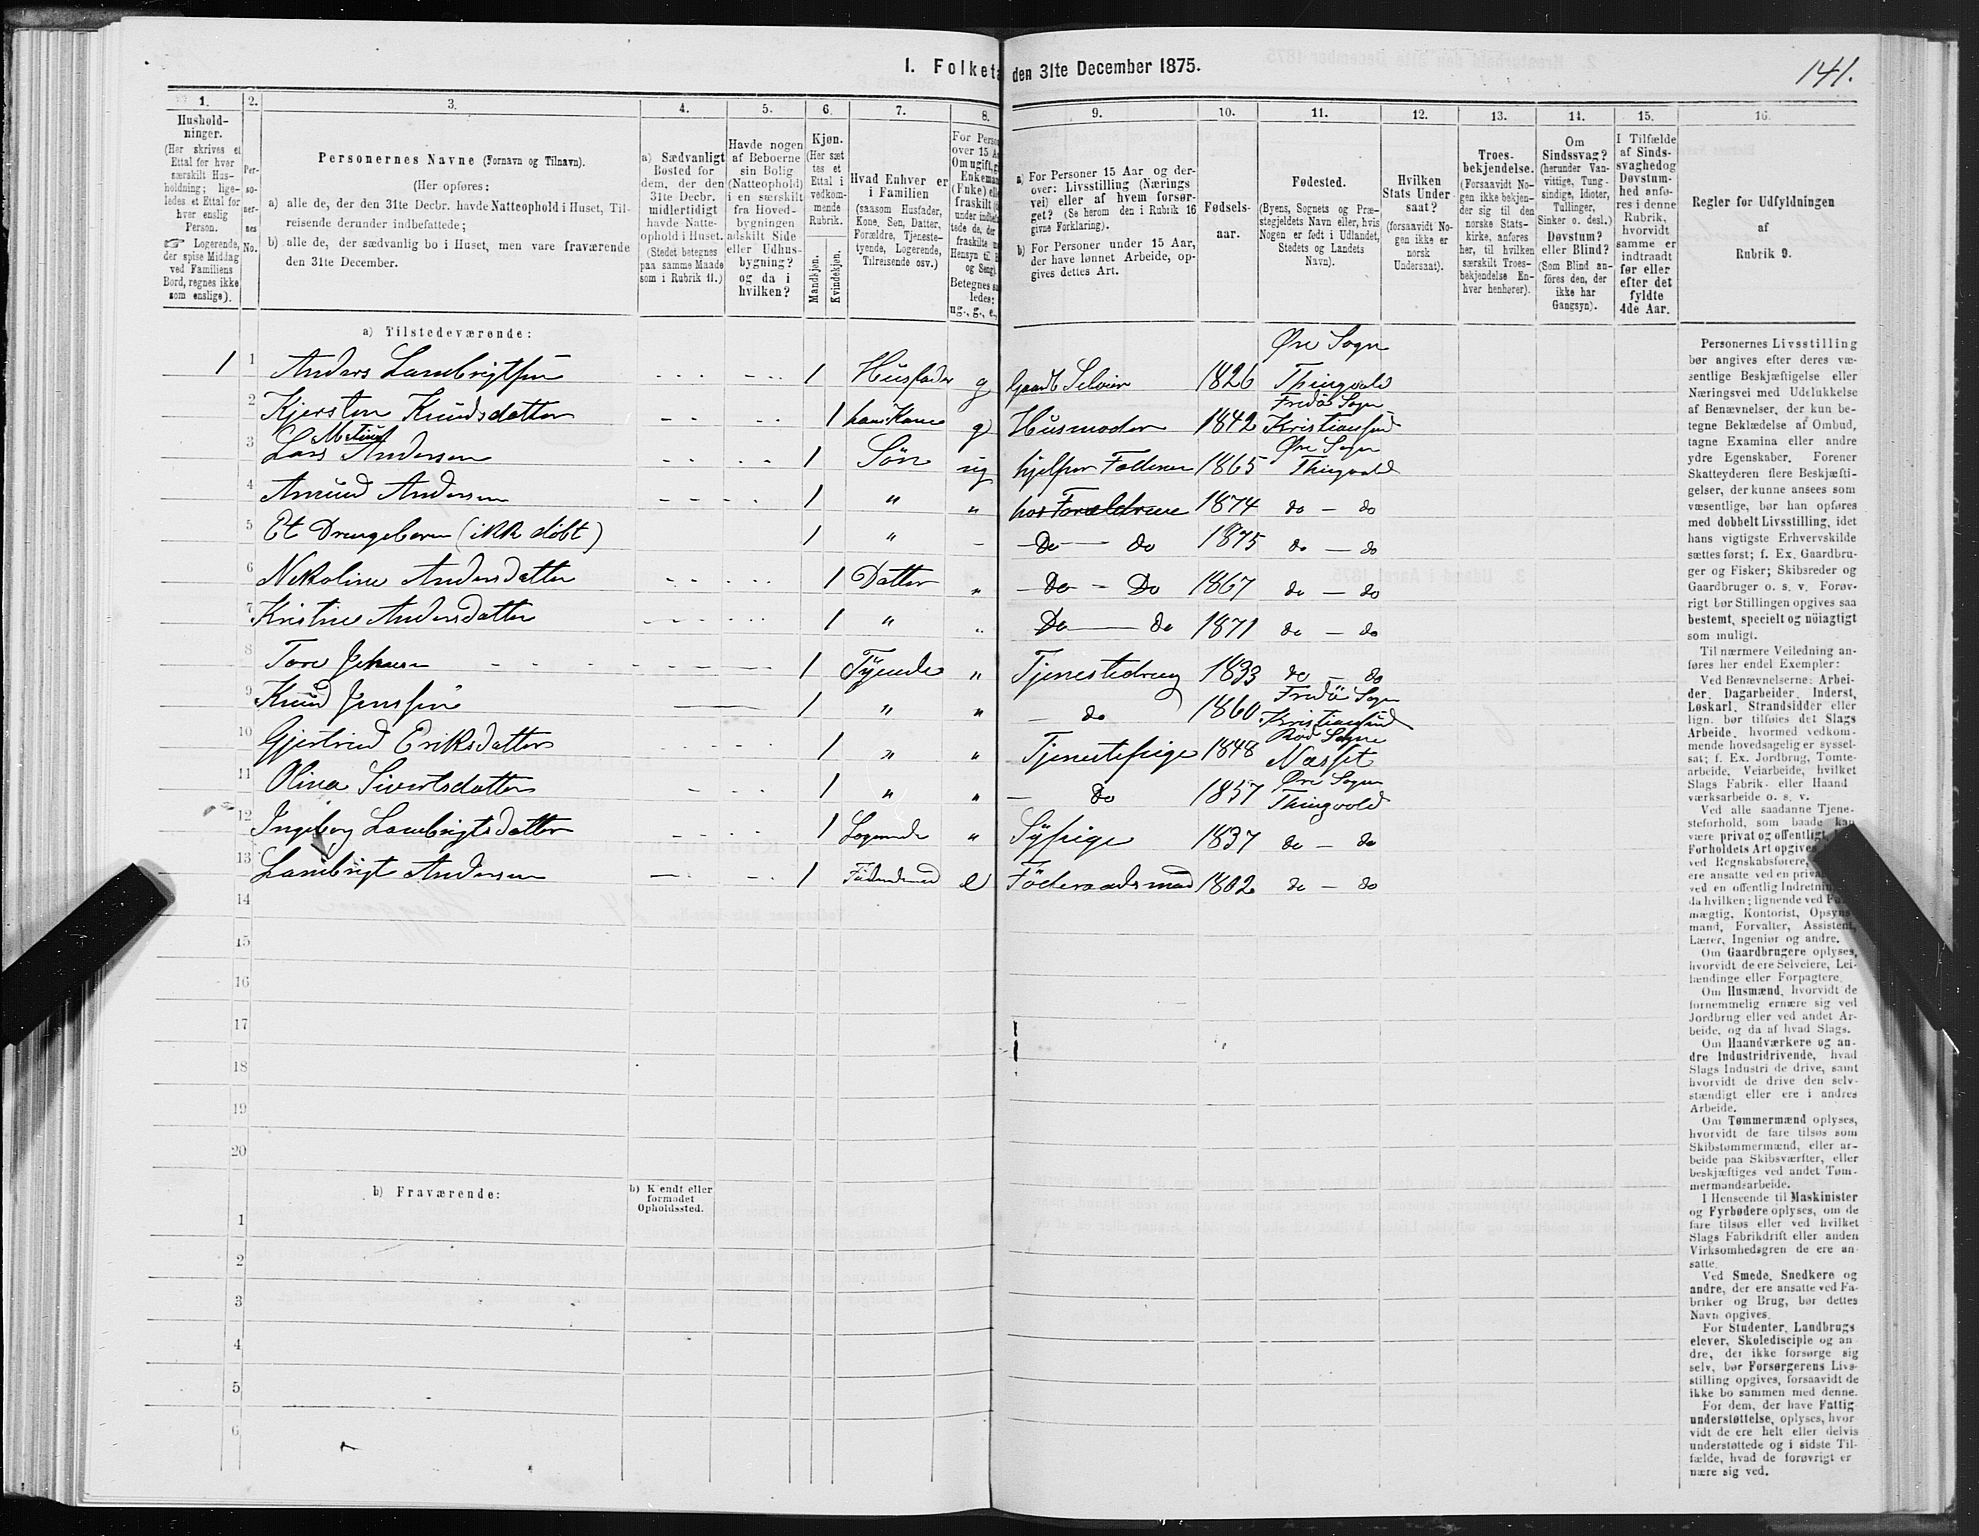 I. Folketæ den 31te December 1875.
141.
1. 2. 3. 4. 5. 6. 7. 8. 9. 10. 11. 12. 13. 14. 15. 16.
Hushold-
ninger.
(Her skrives et
Ettal for hver
særskilt Hus-
holdning; lige-
ledes et Ettal for
hver enslig
Person.
☞ Logerende,
der spise Middag
ved Familiens
Bord, regnes ikke
som enslige).
Per-
so-
ner-
nes
No.
Personernes Navne (Fornavn og Tilnavn).
(Her opføres:
a) alle de, der den 31te Decbr. havde Natteophold i Huset, Til-
reisende derunder indbefattede;
b) alle de, der sædvanlig bo i Huset, men vare fraværende
den 31te December.
a) Sædvanligt
Bosted for
dem, der den
31te Decbr.
midlertidigt
havde Natte-
ophold i Huset.
(Stedet betegnes
paa samme Maade
som i Rubrik 11.)
Havde nogen
af Beboerne
sin Bolig
(Natteophold)
i en særskilt
fra Hoved-
bygningen
adskilt Side
eller Udhus-
bygning?
og da i
hvilken?
Kjøn.
(Her sæt
tes et
Ettal i
vedkom-
mende
Rubrik.
Mandkjøn.
Kvindekjøn.
Hvad Enhver er
i Familien
(saasom Husfader,
Kone, Søn, Datter,
Forældre, Tjeneste-
tyende, Logerende,
Tilreisende osv.)
For Perso
over 15 A
Om ugift, g
Enkeman
(Enke) elle
fraskilt
under indbef
tede de, der
fraskilte
Hensyn til B
og Seng).
Betegnes sa
ledes:
ug., g., e.,
a) For Personer 15 Aar og der-
over: Livsstilling (Nærings
vei) eller af hvem forsør-
get? (Se herom den i Rubrik 16
givne Forklaring).
b) For Personer under 15 Aar,
der have lønnet Arbeide, op-
gives dettes Art.
Fødsels-
aar.
Fødested.
(Byens, Sognets og Præ-
stegjeldets Navn eller, hvis
Nogen er født i Udlandet,
Stedets og Landets
Navn).
Hvilken
Stats Under
saat?
(forsaavidt No-
gen ikke er
norsk
Undersaat).
Troes-
bekjendelse.
(Forsaavidt No-
gen ikke bekjen-
der sig til den
norske Stats-
kirke, anføres
her, til hvilken
særskilt Troes-
bekjendelse En-
hver henhører).
Om
Sindssvag?
(herunder Van-
vittige, Tung-
sindige, Idioter,
Tullinger,
Sinker o. desl.)
Døvstum?
eller Blind?
(Som Blind an-
föres den, der
ikke har
Gangsyn).
I Tilfælde
af Sinds-
svaghedog
Døvstum-
hed anfø-
res i denne
Rubrik,
hvorvidt
samme er
indtraadt
før eller
efter det
fyldte
4de Aar.
Regler for Udfyldningen
af
Rubrik 9.
a) Tilstedeværende:
1 1 Anders Lambrigtsen 1 Husfader g Gaardb Selveier 1826 Øre Sogn Thingvold
2 Kjersten Knudsdatter 1 hans Kone g Husmoder 1842 Fredø Sogn Kristiansund
3 Lars Andersen 1 Søn ug hjelper Faderen 1865 Øre Sogn Thingvold
4 Amund Andersen 1 " " hos Forældrene 1874 do - do
5 Et Drengebarn (ikke døbt) 1 " - Do - do 1875 do - do
6 Nekoline Andersdatter 1 Datter " Do - Do 1867 do - do
7 Kristine Andersdatter 1 " " Do - do 1871 do - do
8 Tore Johnsen 1 Tyende " Tjenestedreng 1833 do - do
9 Knud Jenssen 1 " " - do 1860 Fredö Sogn Kristiansund
10 Gjertrud Eriksdatter 1 " " Tjenestepige 1848 Röd Sogn Næsset
11 Olina Sivertsdatter 1 " " - Do 1857 Øre Sogn Thingvold
12 Ingeborg Lambrigtsdatter 1 Logerende " Sÿpige 1837 do - do
13 Lambrigt Andersen 1 e Föderaadsmand 1802 do - do
14
15
16
17
18
19
20
b) Fraværende:
b) Kjendt eller
formodet
Opholdssted.
1
2
3
4
5
6
Personernes Livsstilling
bør angives efter deres væ-
sentlige Beskjæftigelse eller
Næringsvei med Udelukkelse
af Benævnelser, der kun be-
tegne Beklædelse af Ombud,
tagne Examina eller andre
ydre Egenskaber. Forener
Skatteyderen flere Beskjæfti-
gelser, der kunne ansees som
væsentlige, bør han opføres
med dobbelt Livsstilling, idet
hans vigtigste Erhvervskilde
sættes først; f. Ex. Gaardbru-
ger og Fisker; Skibsreder og
Gaardbruger o. s. v. Forøv-
rigt bør Stillingen opgives saa
bestemt, specielt og nöiagtigt
som muligt.
Til nærmere Veiledning an-
føres her endel Exempler:
Ved Benævnelserne: Arbei-
der, Dagarbeider, Inderst,
Løskarl, Strandsidder eller
lign. bør tilføies det Slags
Arbeide, hvormed vedkom-
mende hovedsagelig er syssel-
sat; f. Ex. Jordbrug, Tomte-
arbeide, Veiarbeide, hvilket
Slags Fabrik- eller Haand
værksarbeide o. s. v.
Ved alle saadanne Tjene-
steforhold, som baade kan
være privat og offentligt,
Forholdets Art opgives
ved Regnskabsførere,
ere ansatte ved en priva
ved en offentlig Indretnin
da hvilken; lignende ved Fu
mægtig, Kontorist, Opsyns
mand, Forvalter, Assistent,
Lærer, Ingeniør og andre.
Om Gaardbrugere oplyses,
hvorvidt de ere Selveiere, Lei-
lændinge eller Forpagtere.
Om Husmænd, hvorvidt de
fornemmelig ernære sig ved
Jordbrug eller ved andet Ar-
beide, og da af hvad Slags.
Om Haandværkere og an-
dre Industridrivende, hvad
Slags Industri de drive, samt
hvorvidt de drive den selv-
stændigt eller ere i andres
Arbeide.
Om Tømmermænd oplyses,
hvorvidt de fare tilsøs som
Skibstømmermænd, eller ar-
beide paa Skibsværfter, eller
beskjæftiges ved andet Tøm-
mermandsarbeide.
I Henseende til Maskinister
og Fyrbødere oplyses, om de
fare tilsøs eller ved hvilket
Slags Fabrikdrift eller anden
Virksomhedsgren de ere an-
satte.
Ved Smede, Snedkere og
andre, der ere ansatte ved Fa-
briker og Brug, bør dettes
Navn opgives.
For Studenter, Landbrugs
elever, Skoledisciple og an-
dre, der ikke forsørge sig
selv, bør Forsørgerens Livs-
stilling opgives, forsaavidt de
ikke bo sammen med denne.
For dem, der have Fattig-
understøttelse, oplyses, hvor-
vidt de ere helt eller delvis
understøttede og i sidste Til-
fælde, hvad de forøvrigt er
nære sig ved.